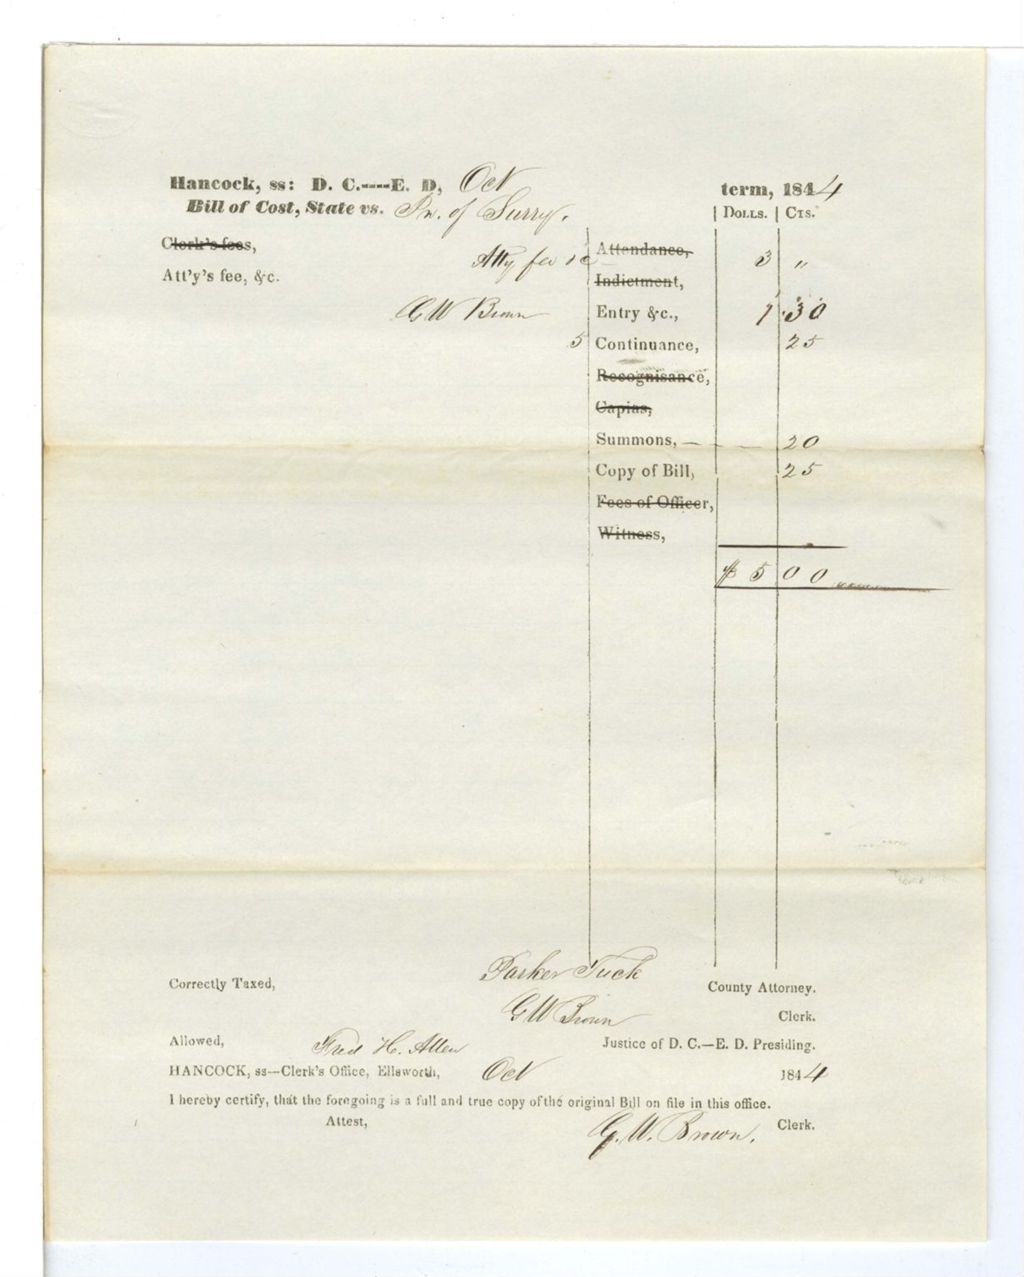 Hancock, ss: D. C.----E. D, Oct term, 1844
Bill of Cost, State vs. In. of Surry. | Dolls. | Cts.
Clerk's fees, Atty fee &c Attendance, 3 "
Att'y's fee, &c. Indictment,
G W Brown Entry &c., 1.30
5 Continuance, 25
Recognisance,
Capias,
Summons, — 20
Copy of Bill, 25
Fees of Officer,
Witness,
$ 5 00
Correctly Taxed, Parker Tuck County Attorney.
G W Brown Clerk.
Allowed, Fred H. Allen Justice of D. C.—E. D. Presiding.
HANCOCK, ss—Clerk's Office, Ellsworth, Oct 1844
I hereby certify, that the foregoing is a full and true copy of the original Bill on file in this office.
Attest, G. W. Brown. Clerk.